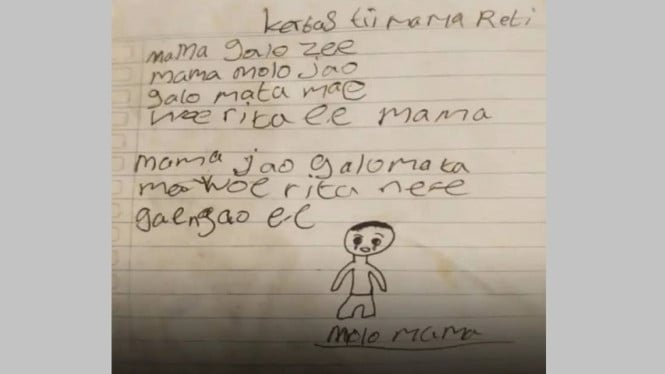 kertas tii mama Reti
mama galo zee
mama molo jao
galo mata mae
woe rita ee mama
mama jao galo mata
mae woe rita ne-e
gaengao ee
molo mama